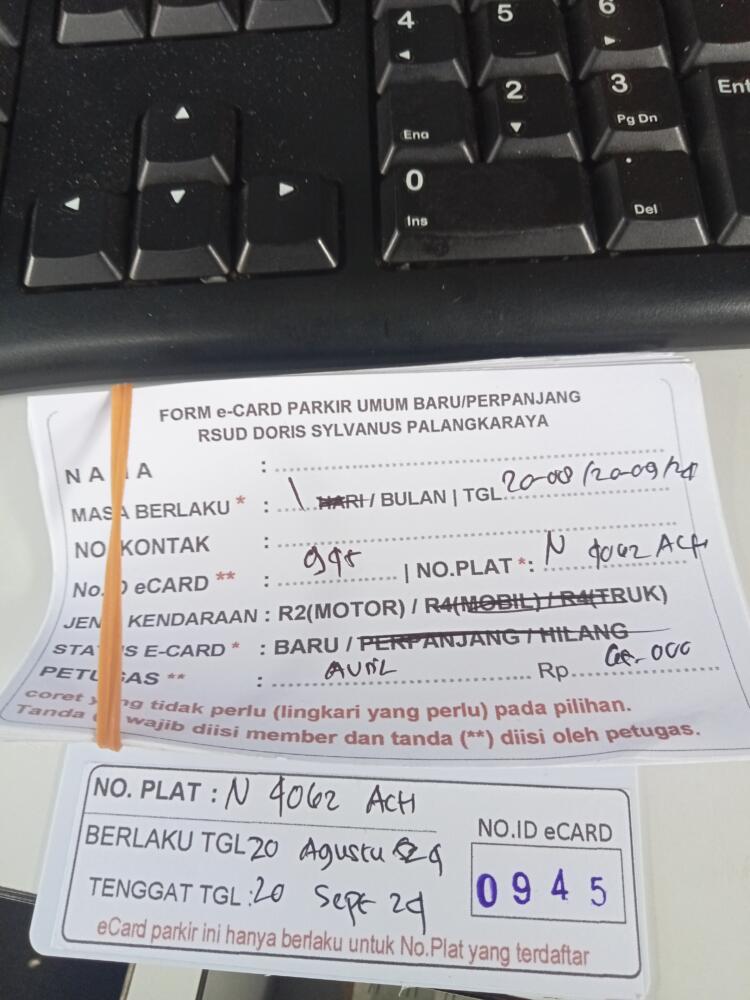 4
5
6
Ent
End
2
3
Pg Dn
0
Ins
Del
FORM e-CARD PARKIR UMUM BARU/PERPANJANG
RSUD DORIS SYLVANUS PALANGKARAYA
NA A :
MASA BERLAKU * : 1 HARI / BULAN | TGL 20-08/20-09/24
NO KONTAK :
No. D eCARD ** : 945 | NO.PLAT *: N 4062 ACH
JEN KENDARAAN : R2(MOTOR) / R4(MOBIL) / R4(TRUK)
STA S E-CARD * : BARU / PERPANJANG / HILANG
PETU AS ** : AURIL Rp 000
coret y ng tidak perlu (lingkari yang perlu) pada pilihan.
Tanda ( wajib diisi member dan tanda (**) diisi oleh petugas.
NO. PLAT : N 4062 ACH
BERLAKU TGL 20 Agustu 24
TENGGAT TGL : 20 Sept 24
NO.ID eCARD
0945
eCard parkir ini hanya berlaku untuk No.Plat yang terdaftar